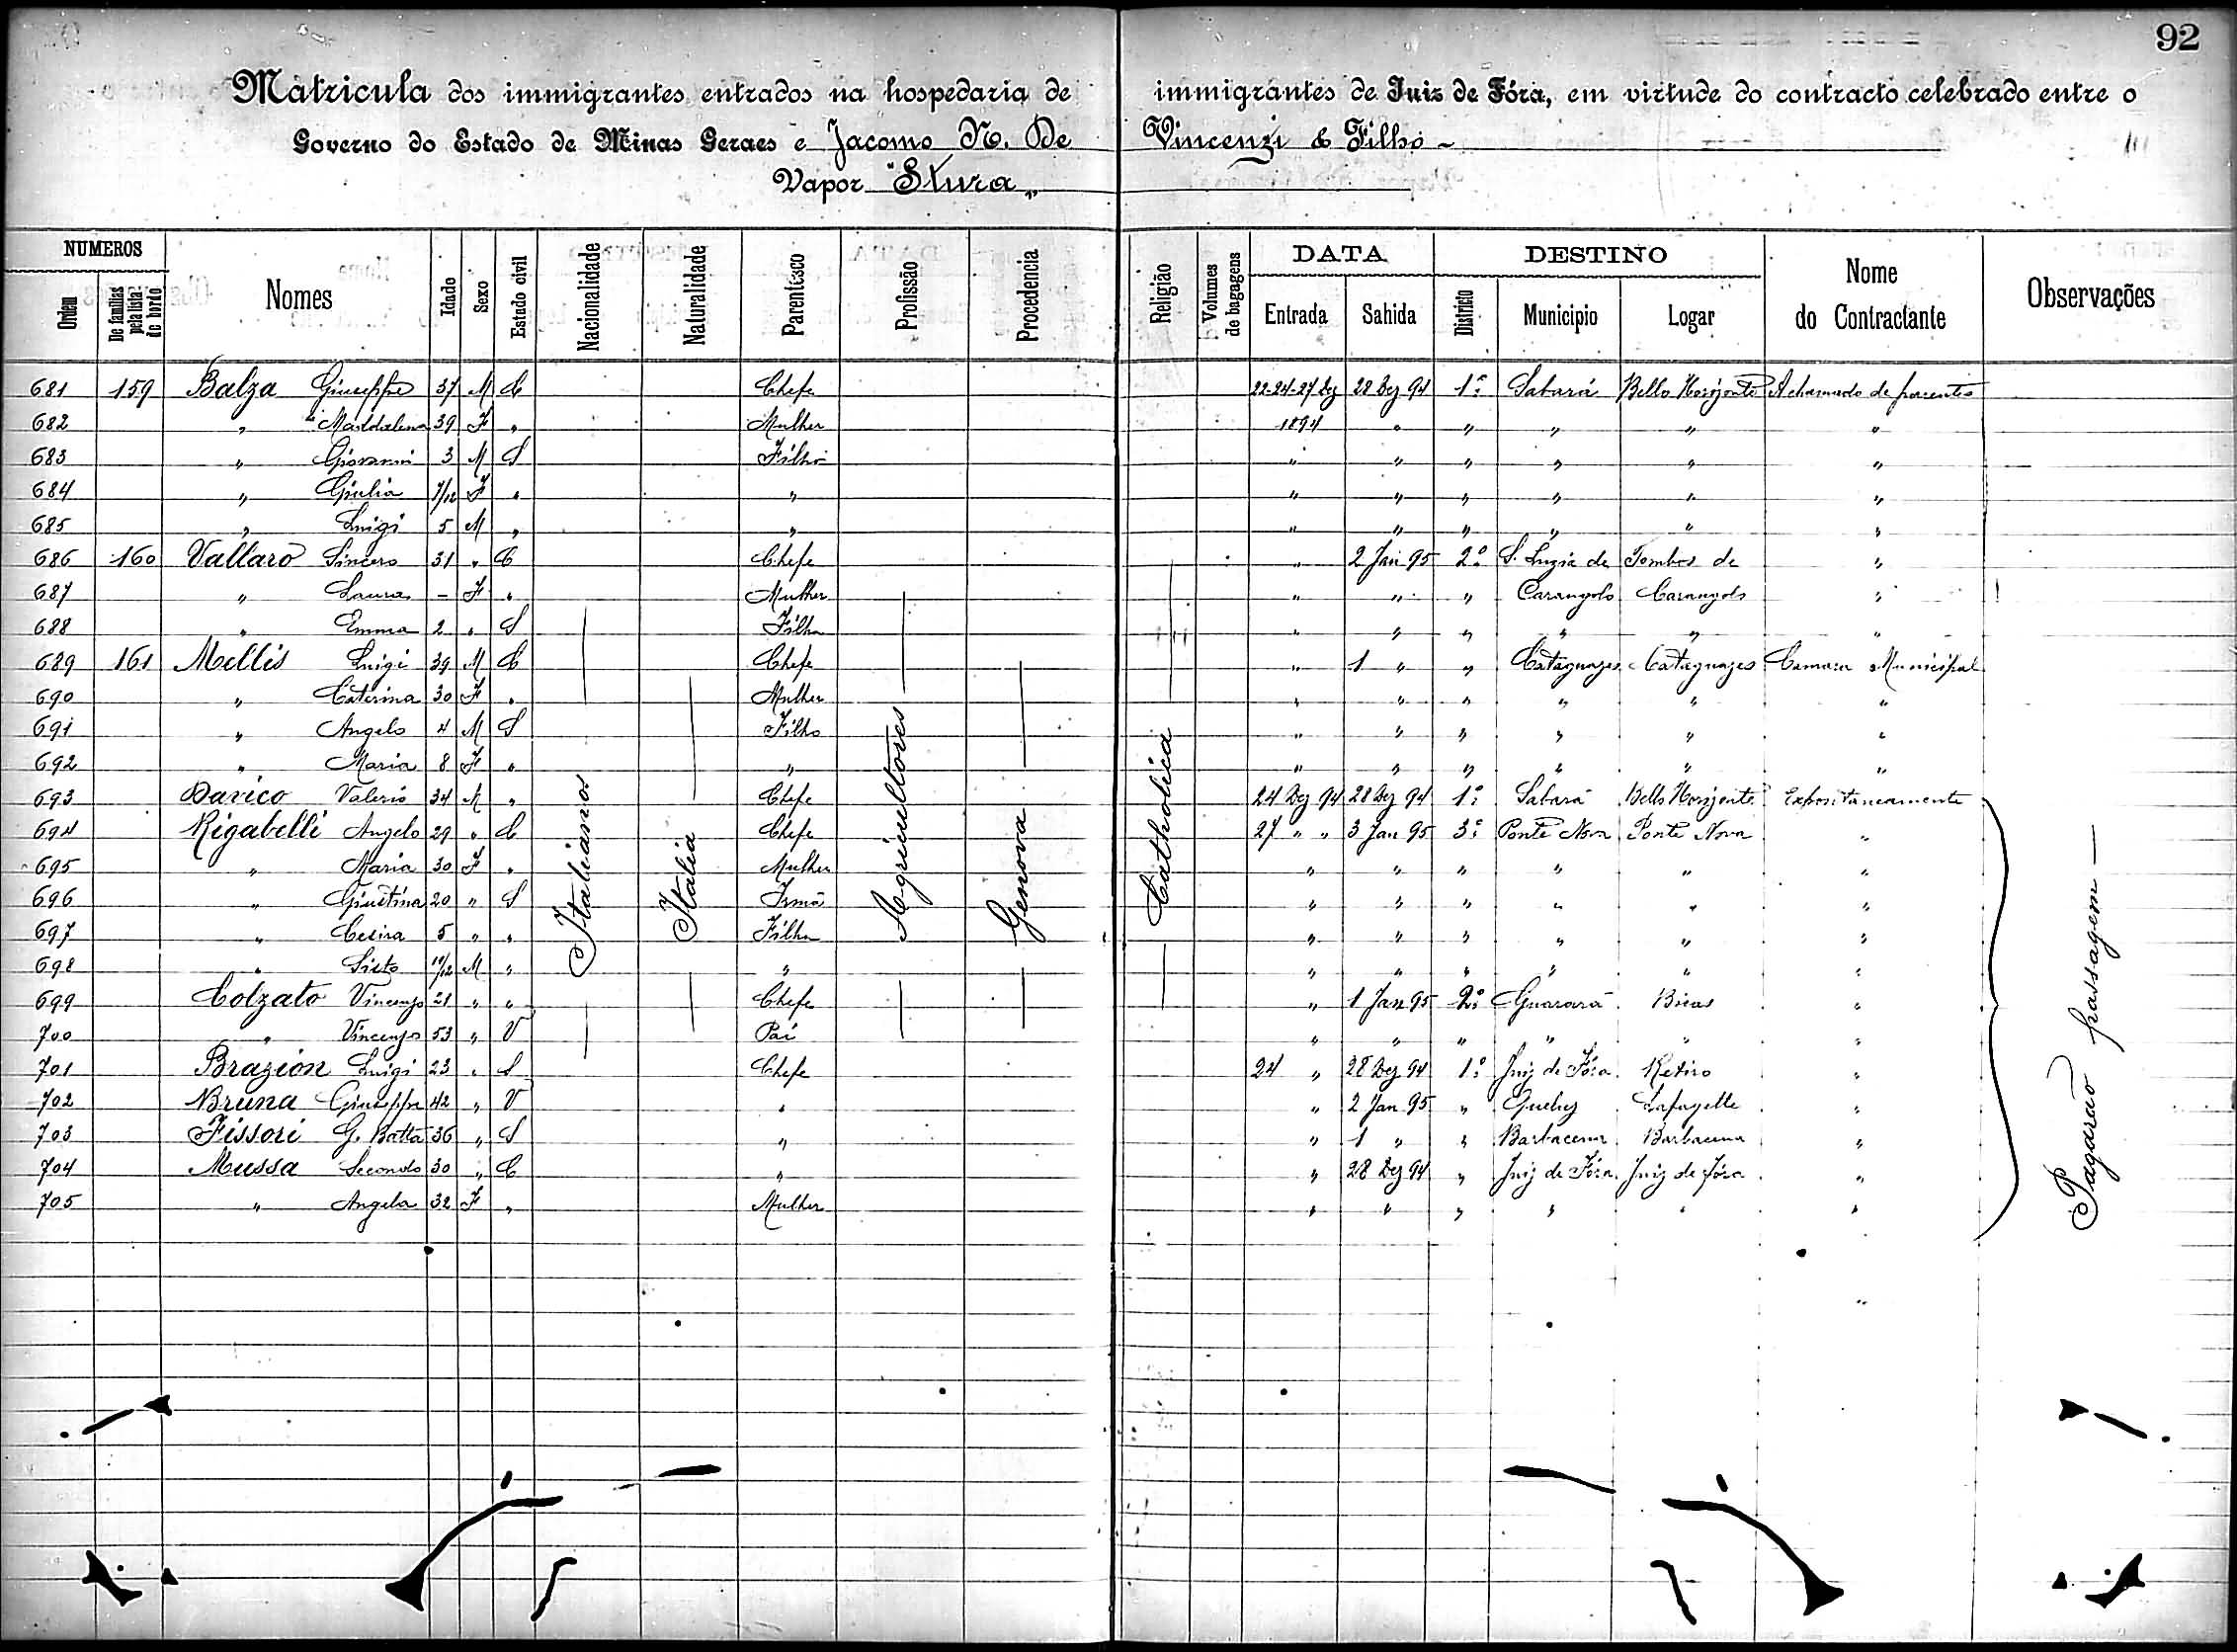 92
Matricula dos immigrantes entrados na hospedaria de immigrantes de Juiz de Fóra, em virtude do contracto celebrado entre o
Governo do Estado de Minas Geraes e Jacomo N. De Vincenzi & Filho
Vapor "Stura"
NUMEROS Nomes Idade Sexo Estado civil Nacionalidade Naturalidade Parentesco Profissão Procedencia Religião Volumes de bagagens DATA DESTINO Nome do Contractante Observações
Ordem De familias pela lista de bordo Entrada Sahida Districto Municipio Logar
681 159 Balza Giuseppe 37 M C Chefe 22-24-27 Dez 28 Dez 94 1º Sabará Bello Horizonte A chamado de parentes
682 " Maddalena 39 F " Mulher 1894 " " " " "
683 " Giovanni 3 M S Filho " " " " " "
684 " Giulia 7/12 F " " " " " " " "
685 " Luigi 5 M " " " " " " " "
686 160 Vallaro Sincero 31 " C Chefe " 2 Jan 95 2º S. Luzia de Tombos de "
687 " Laura - F " Mulher " " " Carangolo Carangolo "
688 " Emma 2 " S Filha " " " " " "
689 161 Mellis Luigi 39 M C Chefe " 1 " " Cataguazes Cataguazes Camara Municipal
690 " Caterina 30 F " Mulher " " " " " "
691 " Angelo 4 M S Filho " " " " " "
692 " Maria 8 F " " " " " " " "
693 Davico Valerio 34 M " Chefe 24 Dez 94 28 Dez 94 1º Sabará Bello Horizonte Expontaneamente
694 Rigabelli Angelo 29 " C Chefe 27 " " 3 Jan 95 3º Ponte Nova Ponte Nova "
695 " Maria 30 F " Mulher " " " " " "
696 " Giustina 20 " S Irmã " " " " " "
697 " Cesira 5 " " Filha " " " " " "
698 " Sisto 11/12 M " " " " " " " "
699 Colzato Vincenzo 21 " " Chefe " 1 Jan 95 2º Guarará Bicas "
700 " Vincenzo 53 " V Pai " " " " " "
701 Brazion Luigi 23 " S Chefe 24 " 28 Dez 94 1º Juiz de Fóra Retiro "
702 Bruna Giuseppe 42 " V " " 2 Jan 95 " Queluz Lafayette "
703 Fissori G. Batta 36 " S " " 1 " " Barbacena Barbacena "
704 Mussa Secondo 30 " C " " 28 Dez 94 " Juiz de Fóra Juiz de Fóra "
705 " Angela 32 F " Mulher " " " " " "
Italianos
Italia
Agricultores
Genova
Catholica
Pagarão passagem